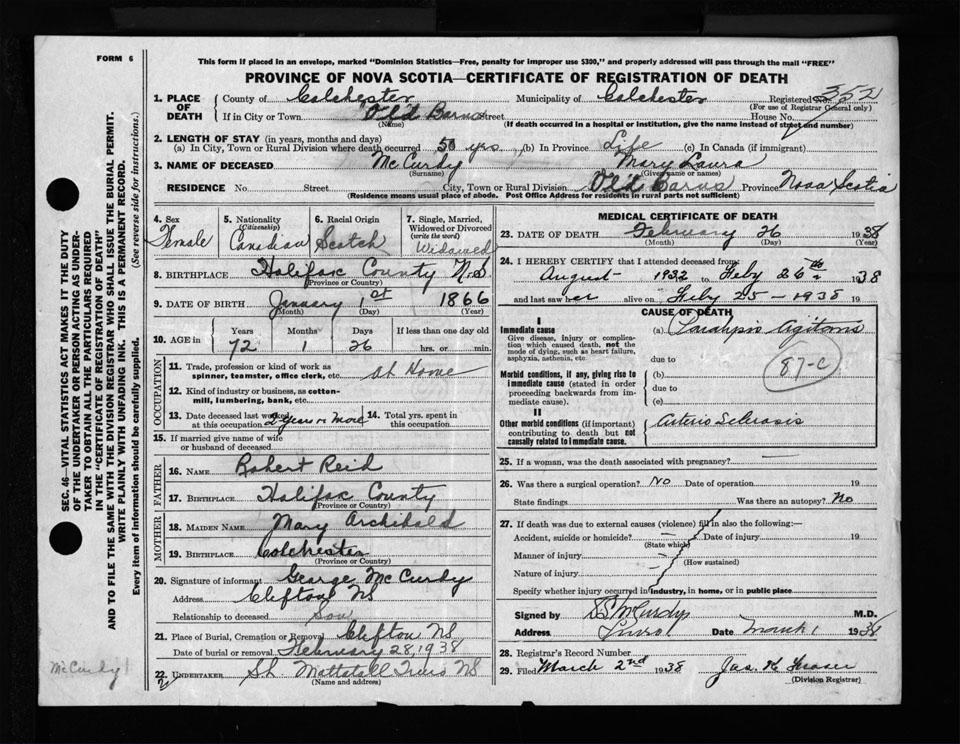 FORM 6
This form if placed in an envelope, marked "Dominion Statistics—Free, penalty for improper use $300," and properly addressed will pass through the mail "FREE"
PROVINCE OF NOVA SCOTIA—CERTIFICATE OF REGISTRATION OF DEATH
1. PLACE OF DEATH County of Colchester Municipality of Colchester Registered No. 352
(For use of Registrar General only)
If in City or Town Old Barns Street House No.
(Name) (If death occurred in a hospital or institution, give the name instead of street and number)
2. LENGTH OF STAY (in years, months and days)
(a) In City, Town or Rural Division where death occurred 50 yrs (b) In Province Life (c) In Canada (if immigrant)
3. NAME OF DECEASED McCurdy Mary Laura
(Surname) (Given name or names)
RESIDENCE No. Street City, Town or Rural Division Old Barns Province Nova Scotia
(Residence means usual place of abode. Post Office Address for residents in rural parts not sufficient)
4. Sex Female
5. Nationality (Citizenship) Canadian
6. Racial Origin Scotch
7. Single, Married, Widowed or Divorced (write the word) Widowed
8. BIRTHPLACE Halifax County N.S
(Province or Country)
9. DATE OF BIRTH January 1st 1866
(Month) (Day) (Year)
10. AGE in Years Months Days If less than one day old
72 1 26 hrs. or min.
OCCUPATION
11. Trade, profession or kind of work as spinner, teamster, office clerk, etc. at Home
12. Kind of industry or business, as cotton-mill, lumbering, bank, etc.
13. Date deceased last worked at this occupation 2 years or more 14. Total yrs. spent in this occupation
15. If married give name of wife or husband of deceased
FATHER
16. NAME Robert Reid
17. BIRTHPLACE Halifax County
(Province or Country)
MOTHER
18. MAIDEN NAME Mary Archibald
19. BIRTHPLACE Colchester
(Province or Country)
20. Signature of informant George McCurdy
Address Clifton NS
Relationship to deceased Son
21. Place of Burial, Cremation or Removal Clifton NS
Date of burial or removal February 28, 1938
22. UNDERTAKER Mattatall NS
(Name and address)
MEDICAL CERTIFICATE OF DEATH
23. DATE OF DEATH February 26 1938
(Month) (Day) (Year)
24. I HEREBY CERTIFY that I attended deceased from:
August 1932 to Feby 26th 1938
and last saw her alive on Feby 25 - 1938 19
CAUSE OF DEATH
I
Immediate cause
Give disease, injury or complication which caused death, not the mode of dying, such as heart failure, asphyxia, asthenia, etc.
(a) Agitans
due to
87-C
Morbid conditions, if any, giving rise to immediate cause (stated in order proceeding backwards from immediate cause).
(b)
due to
(c)
II
Other morbid conditions (if important) contributing to death but not causally related to immediate cause.
Arterio Sclerosis
25. If a woman, was the death associated with pregnancy? —
26. Was there a surgical operation? No Date of operation 19
State findings Was there an autopsy? No
27. If death was due to external causes (violence) fill in also the following:—
Accident, suicide or homicide? Date of injury 19
(State which)
Manner of injury
(How sustained)
Nature of injury
Specify whether injury occurred in industry, in home, or in public place
Signed by McCurdy M.D.
Address Truro Date March 1 1938
28. Registrar's Record Number
29. Filed March 2nd 1938 Jas. K Fraser
(Division Registrar)
SEC. 46—VITAL STATISTICS ACT MAKES IT THE DUTY
OF THE UNDERTAKER OR PERSON ACTING AS UNDER-
TAKER TO OBTAIN ALL THE PARTICULARS REQUIRED
IN THE "CERTIFICATE OF REGISTRATION OF DEATH"
AND TO FILE THE SAME WITH THE DIVISION REGISTRAR WHO SHALL ISSUE THE BURIAL PERMIT.
WRITE PLAINLY WITH UNFADING INK. THIS IS A PERMANENT RECORD.
Every item of information should be carefully supplied. (See reverse side for instructions.)
McCurdy